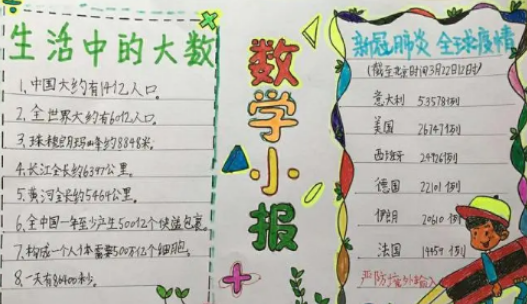 生活中的大数
1、中国大约有14亿人口。
2、全世界大约有60亿人口。
3、珠穆朗玛峰约8848米。
4、长江全长约6397公里。
5、黄河全长约5464公里。
6、全中国一年至少产生500亿个快递包裹。
7、构成一个人体需要500万亿个细胞。
8、一天有86400秒。
数学小报
新冠肺炎 全球疫情
(截至北京时间3月22日12时)
意大利 53578例
美国 26747例
西班牙 24926例
德国 22101例
伊朗 20610例
法国 14459例
严防境外输入